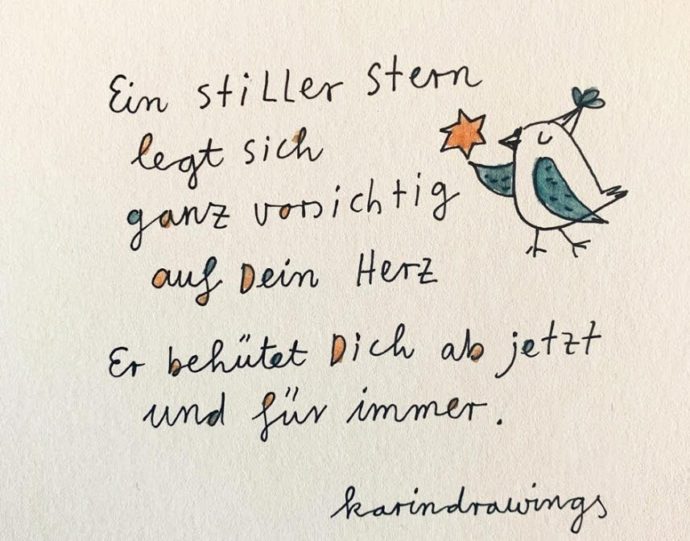 Ein stiller Stern
legt sich
ganz vorsichtig
auf Dein Herz
Er behütet Dich ab jetzt
und für immer.
karindrawings